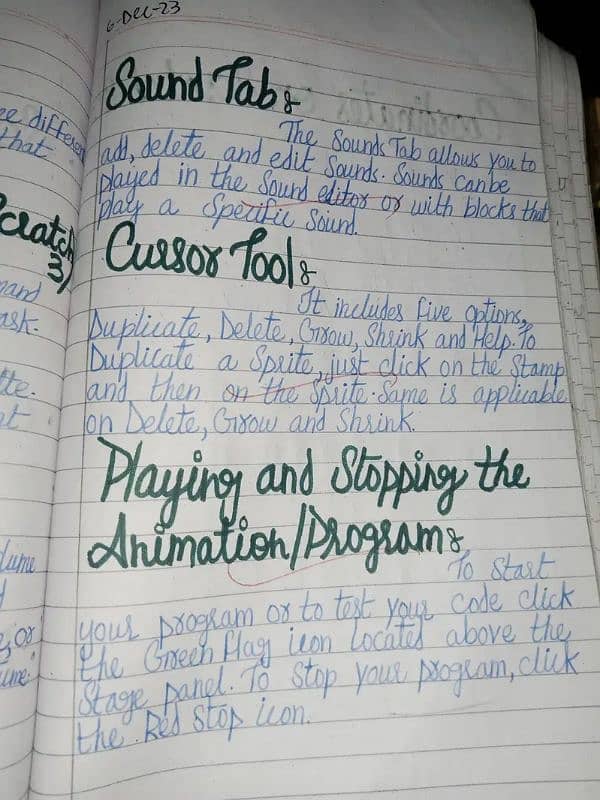 6-Dec-23
Sound Tab:
The Sounds Tab allows you to
add, delete and edit Sounds. Sounds can be
played in the Sound editor or with blocks that
play a Specific Sound.
Cursor Tool:
It includes five options,
Duplicate, Delete, Grow, Shrink and Help. To
Duplicate a Sprite, just click on the Stamp
and then on the Sprite. Same is applicable
on Delete, Grow and Shrink.
Playing and Stopping the
Animation/Program:
To Start
your program or to test your code click
the Green Flag icon located above the
Stage panel. To stop your program, click
the Red Stop icon.